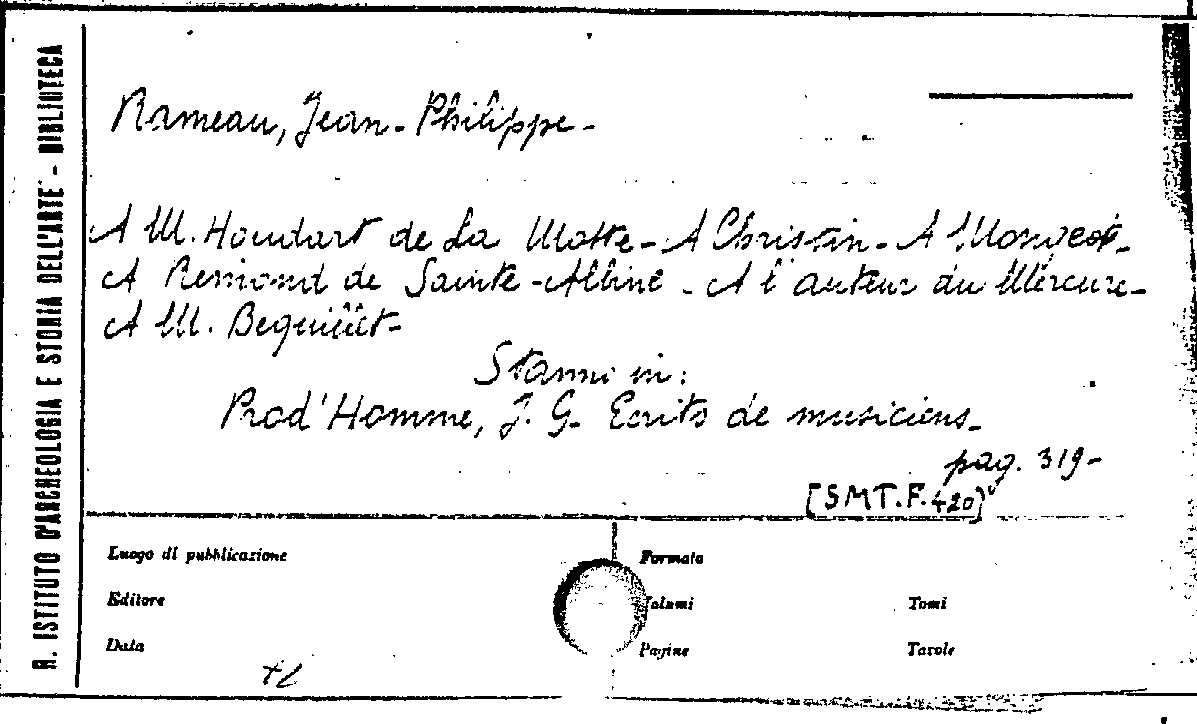 R. ISTITUTO D'ARCHEOLOGIA E STORIA DELL'ARTE - BIBLIOTECA
Rameau, Jean-Philippe-
A M. Houdart de La Motte - A Christin - A Mongeot-
A Remond de Sainte-Albine - A l'auteur du Mercure-
A M. Beguillet-
Stanno in:
Prod'Homme, J. G. Ecrits de musiciens-
pag. 319-
[SMT.F.420]
Luogo di pubblicazione
Formato
Editore
Volumi
Tomi
Data
Pagine
Tavole